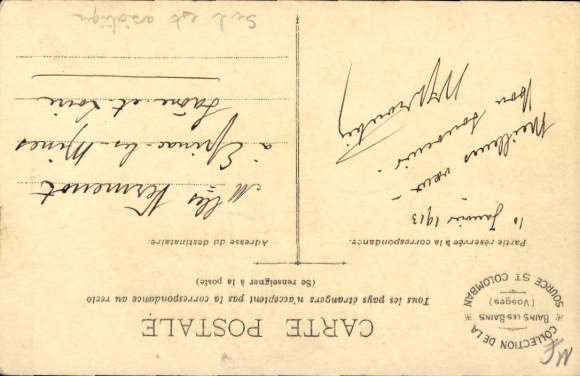 CARTE POSTALE
Tous les pays étrangers n'acceptent pas la correspondance au recto
(Se renseigner à la poste)
COLLECTION DE LA SOURCE ST COLOMBAN
BAINS-LES-BAINS
(Vosges)
Partie réservée à la correspondance.
Adresse du destinataire:
10 Janvier 1913
Meilleurs vœux -
Bon souvenir.
Mlles Vermenot
à Epinac-les-Mines
Saône-et-Loire
Sud est asiatique